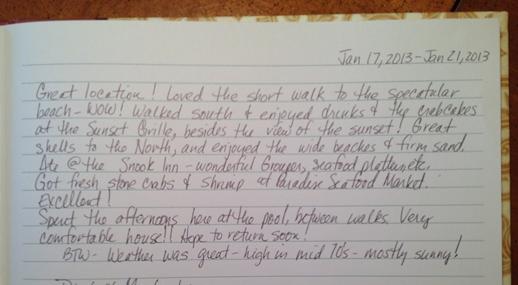 Jan 17, 2013 - Jan 21, 2013
Great location! Loved the short walk to the specatular
beach - WOW! Walked south & enjoyed drinks & the crabcakes
at the Sunset Grille, besides the view of the sunset! Great
shells to the North, and enjoyed the wide beaches & firm sand.
Ate @ the Snook Inn - wonderful Grouper, seafood platter, etc.
Got fresh stone crabs & shrimp at Paradise Seafood Market.
Excellent!
Spent the afternoons here at the pool, between walks. Very
comfortable house!! Hope to return soon!
BTW - Weather was great - high in mid 70's - mostly sunny!